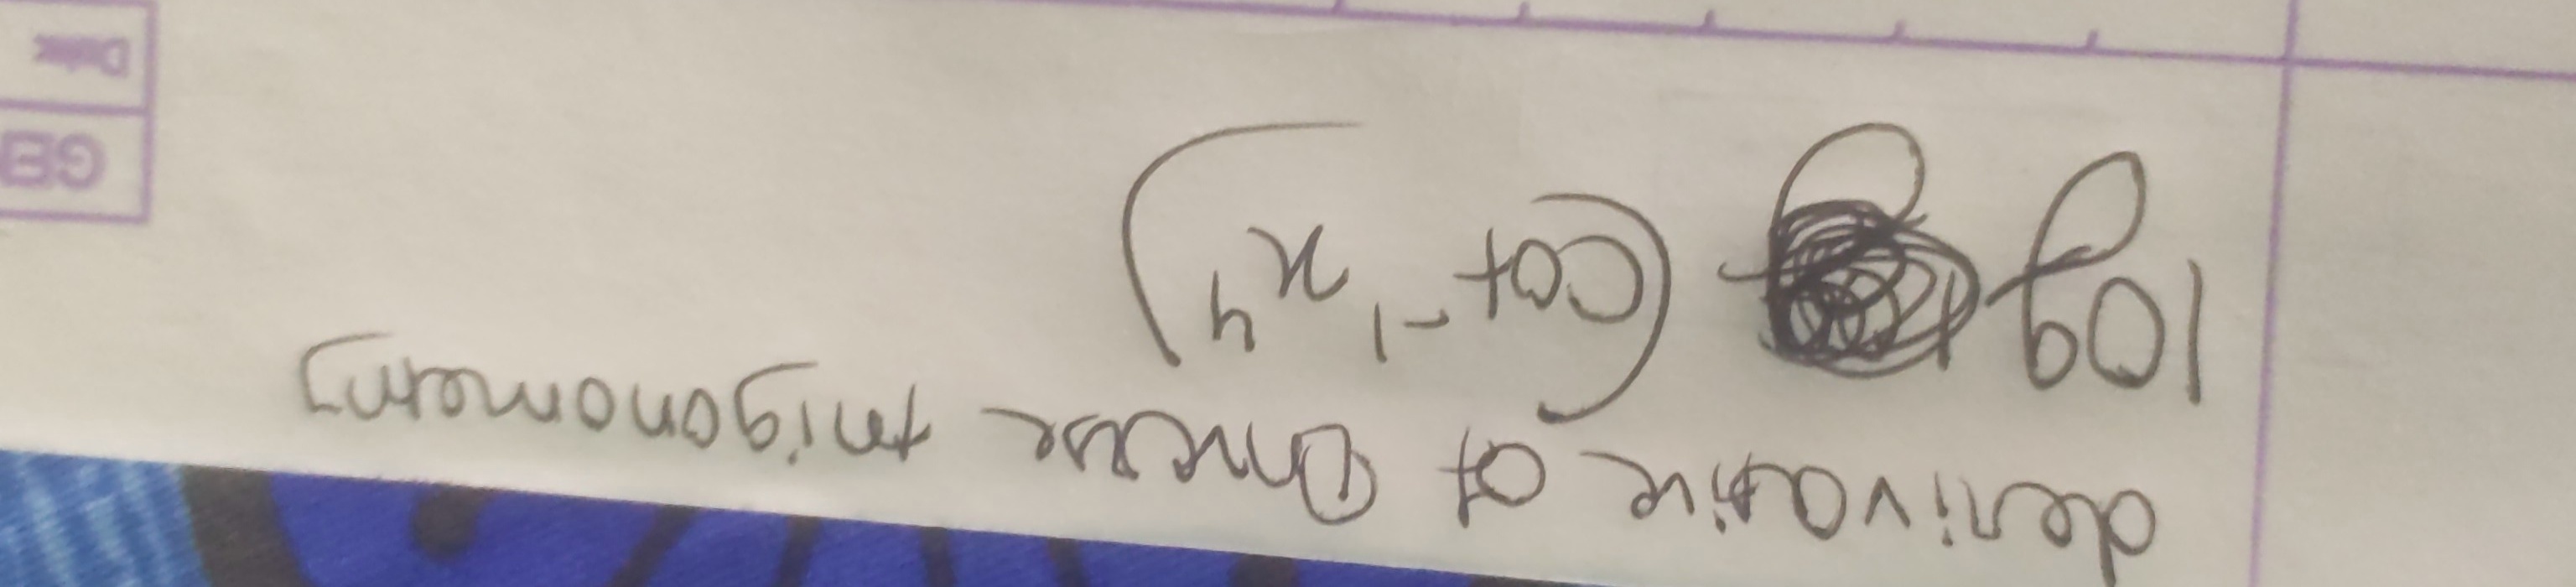 derivative of Inverse trigonometry
log (cot⁻¹ x⁴)
GE
Date